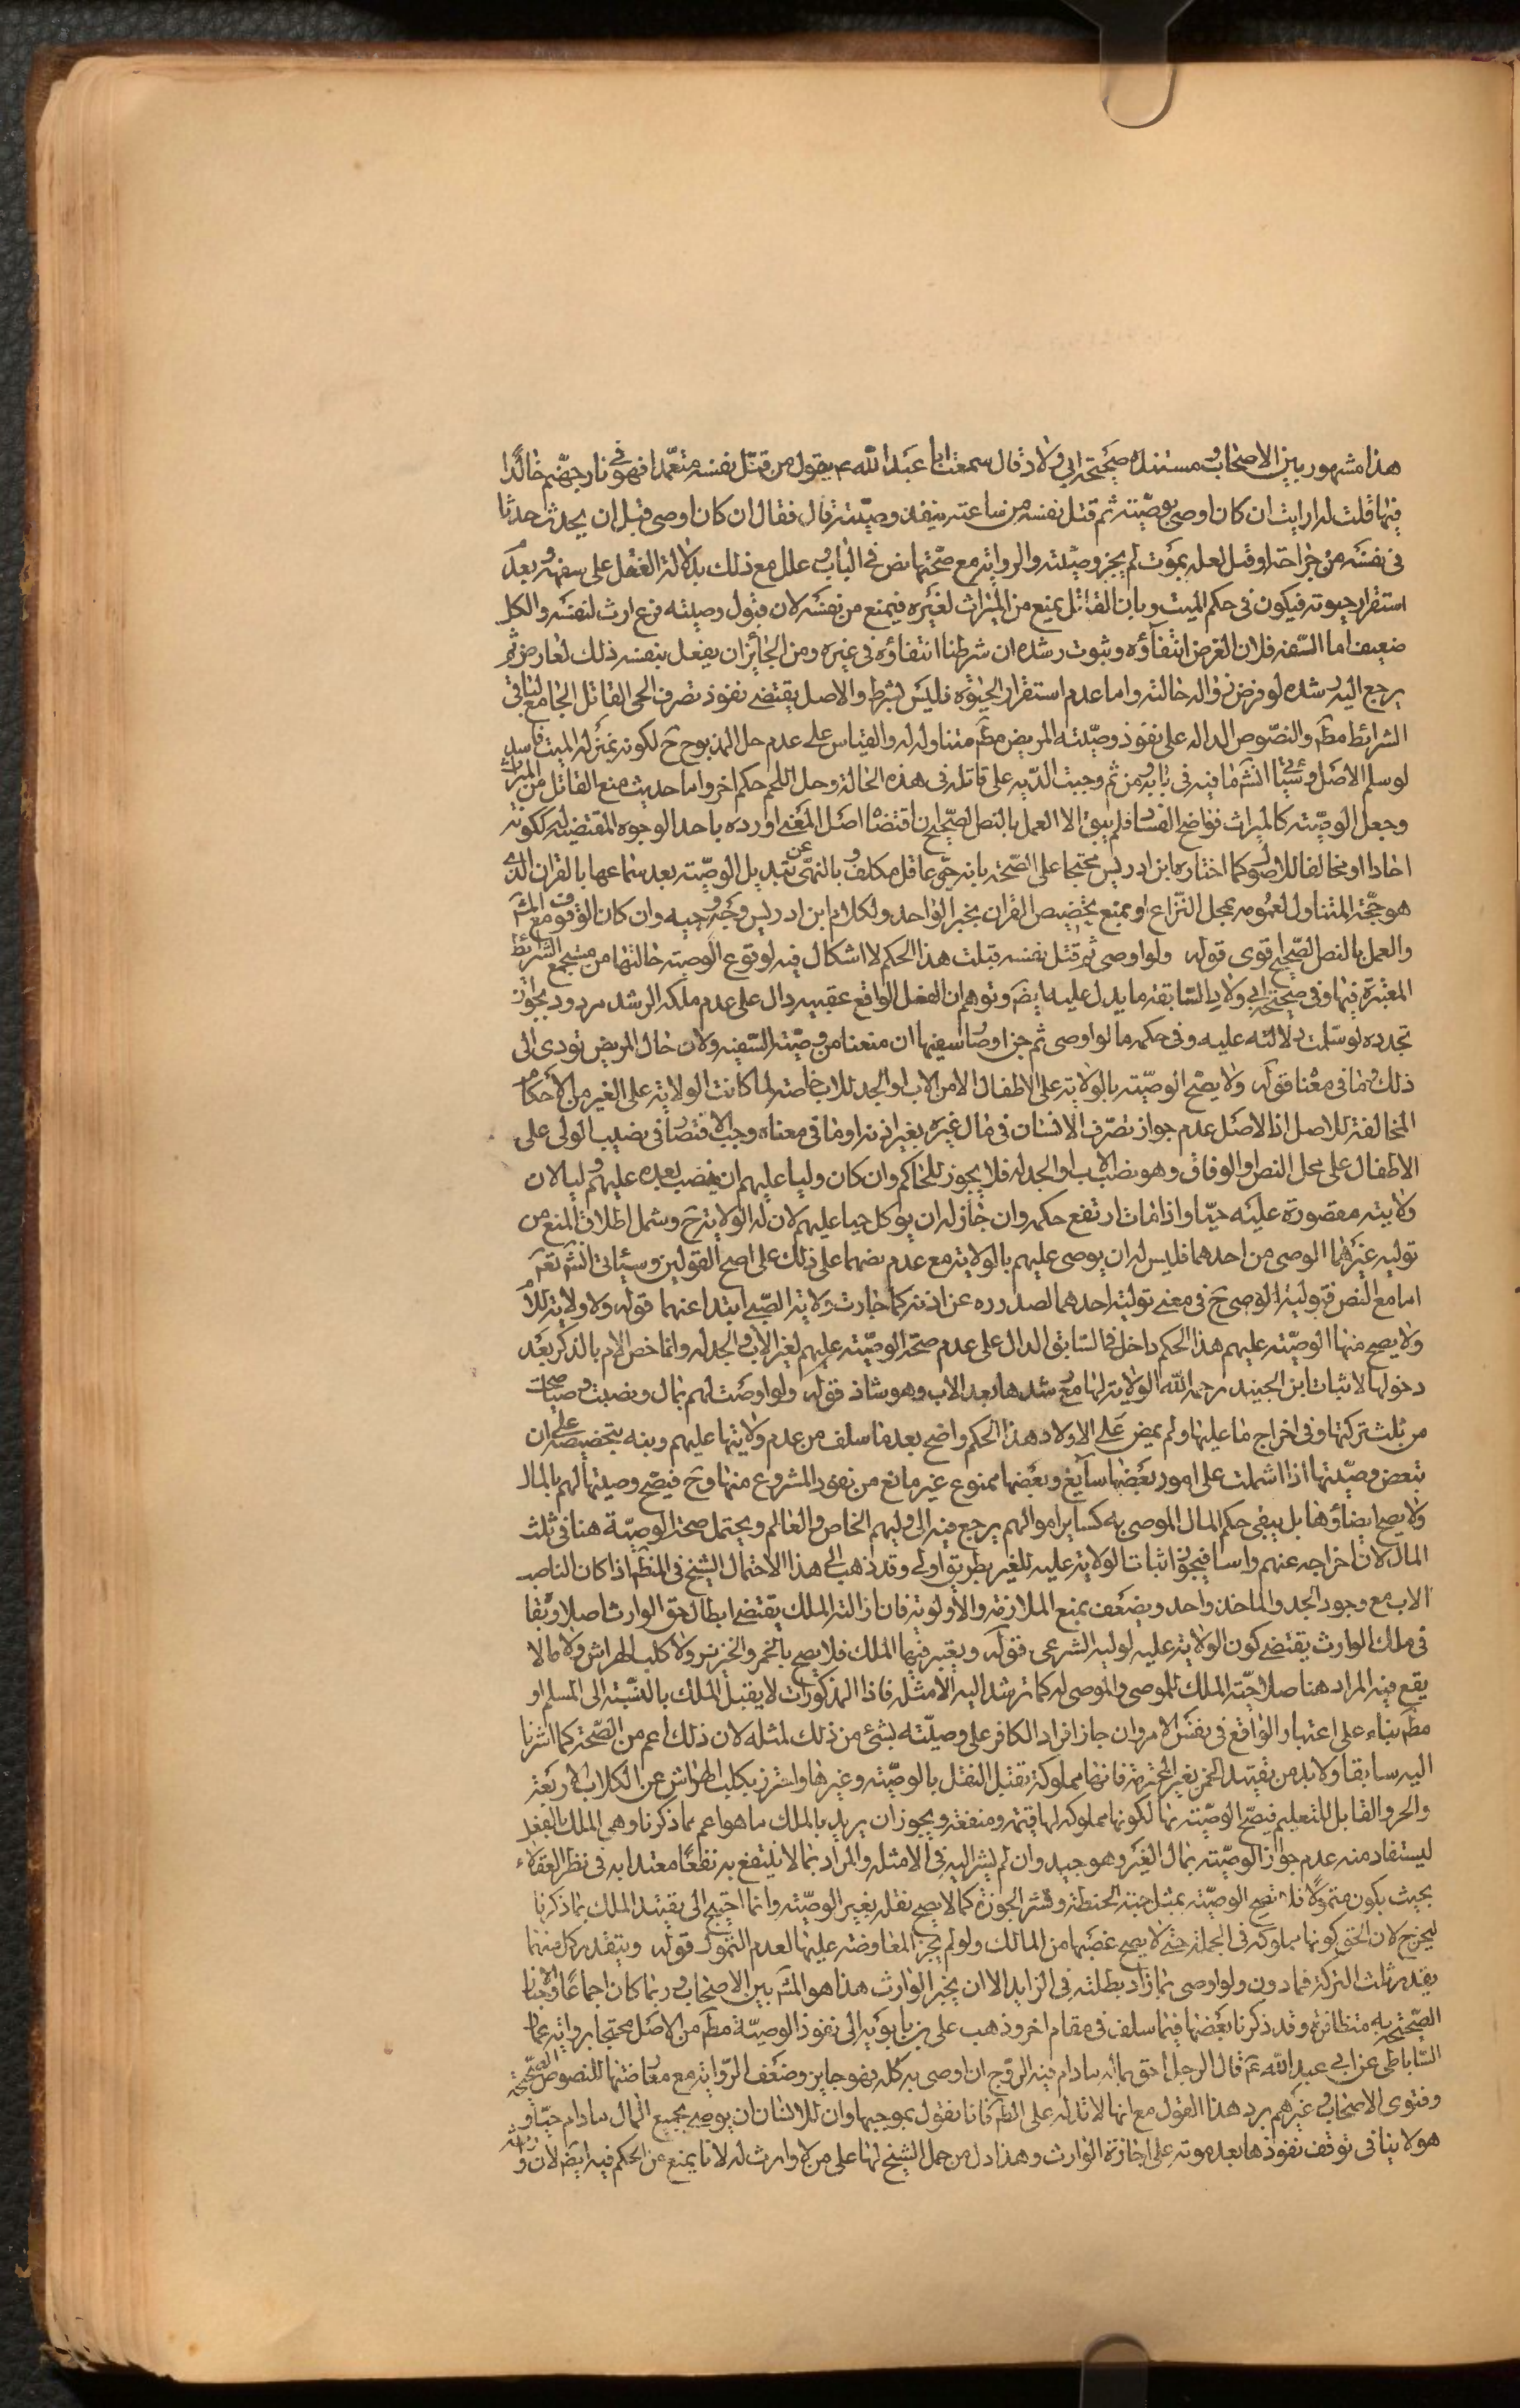 هذا مشهور بين الاصحاب ومستنده صحيحة ابي ولاد قال سمعت ابا عبد الله ع يقول من قتل نفسه متعمدا فهو في نار جهنم خالدا
فيها قلت له ارايت ان كان اوصى بوصيته ثم قتل نفسه من ساعته ينفذ وصيته قال فقال ان كان اوصى قبل ان يحدث حدثا
في نفسه من جراحة او قتل لعله يموت لم يجز وصيته والرواية مع صحتها نص في الباب وعلل مع ذلك بدلالة الفعل على سفهه وبعدم
استقرار حيوته فيكون في حكم الميت وبان القاتل يمنع من الميراث لغيره فيمنع من نفسه لان قبول وصيته نوع ارث لنفسه والكل
ضعيف اما السفه فلان الفرض انتفاؤه وثبوت رشده ان شرطنا انتفاؤه في غيره ومن الجائز ان يفعل بنفسه ذلك لعارض ثم
يرجع اليه رشده لو فرض زواله حالته واما عدم استقرار الحيوة فليس بشرط والاصل يقتضي نفوذ تصرف الحي القاتل الجامع لباقي
الشرائط مطم والنصوص الداله على نفوذ وصيته المريض مطم متناوله له والقياس على عدم حل المذبوح ح لكونه بمنزله الميت فاسد
لو سلم الاصل وسياتي انشم ما فيه في بابه ومن ثم وجبت الديه على قاتله في هذه الحالة وحل اللحم حكم اخر واما حديث منع القاتل من الميراث
وجعل الوصيته كالميراث فواضح الفساد فلم يبق الا العمل بالنص الصحيح ان اقتضاه اصل المغنى اورده باحد الوجوه المقتضيه له ككونه
احادا او مخالفا للاصول كما اختاره ابن ادريس محتجا على الصحة بانه حي عاقل مكلف وبالنهي عن تبديل الوصيته بعد سماعها بالقران الذي
هو حجة المتناول لعمومه بمحل النزاع او بمنع تخصيص القران بخبر الواحد ولكلام ابن ادريس وجه وجيه وان كان الوقوف مع المشهم
والعمل بالنص الصحيح اقوى قوله ولو اوصى ثم قتل نفسه قبلت هذا الحكم لا اشكال فيه لوقوع الوصيه حالتها من مستجمع الشرائط
المعتبرة فيها وفي صحيحة ابي ولاد السابقة ما يدل عليه ايضم وتوهم ان الفعل الواقع عقيبه دال على عدم ملكه الرشد مردود بجواز
تجدده لو سلمت دلالته عليه وفي حكمه ما لو اوصى ثم جن او صار سفيها ان منعنا من وصيته السفيه ولان حال المريض تودى الى
ذلك وما في معنا قوله ولا يصح الوصيته بالولاية على الاطفال الا من الاب او الجد للاب خاصته لما كانت الولاية على الغير من الاحكام
المخالفة للاصل اذ الاصل عدم جواز تصرف الانسان في مال غيره بغير اذنه او ما في معناه وجب الاقتصار في نصيب الولى على
الاطفال على محل النص او الوفاق وهو نصب الاب او الجد له فلا يجوز للحاكم وان كان وليا عليهم ان ينصب بعده عليهم وليا لان
ولايته مقصورة عليه حيا واذا مات ارتفع حكمه وان جاز له ان يوكل حيا عليهم لان له الولايته ح وشمل اطلاق المنع من
توليه غيرهما الوصى من احدهما فليس له ان يوصى عليهم بالولايته مع عدم نصهما على ذلك على اصح القولين وسياتي انشم تعم
اما مع النص فتولية الوصى ح في معنى تولية احدهما لصدوره عن اذنه كما جازت ولاية الصبي ابتدا عنهما قوله ولا ولاية للام
ولا يصح منها الوصيته عليهم هذا الحكم داخل في السابق الدال على عدم صحة الوصيته عليهم لغير الاب والجد له وانما خص الام بالذكر بعد
دخولها لاثبات ابن الجنيد رحمه الله الولايته لها مع رشدها بعد الاب وهو شاذ قوله ولو اوصت لهم بمال ونصبت وصيا صحت
من ثلث تركتها وفي اخراج ما عليها ولم يمض على الاولاد هذا الحكم واضح بعد ما سلف من عدم ولايتها عليهم ونبه بتخصيصه على ان
تبعض وصيتها اذا اشملت على امور بعضها سايغ وبعضها ممنوع غير مانع من نفوذ المشروع منها وح فيصح وصيتها لهم بالمال
ولا يصح ايضاؤها بل يبقى حكم المال الموصى به كساير اموالهم يرجع فيه الى وليهم الخاص والعالم ويحتمل صحة الوصيّة هنا في ثلث
المال لان اخراجه عنهم راسا فيجوز اثبات الولاية عليه للغير بطريق اولى وقد ذهب الى هذا الاحتمال الشيخ في المنظم اذا كان الناصب
الاب مع وجود الجد والماخذ واحد ويضعف بمنع الملازمة والاولوية فان ازالته الملك يقتضي ابطال حق الوارث اصلا وبقا
في ملك الوارث يقتضي كون الولاية عليه لوليه الشرعي قوله ويعتبر فيهما الملك فلا يصح بالخمر والخنزير ولا كلب الهراش ولا مالا
يقع فيه المراد هنا صلاحيّة الملك للموصى والموصى له كما ترشد اليه الامثله فاذا المذكورات لا يقبل الملك بالنسبته الى المسلم او
مطم بناء على اعتبار الواقع في نفس الامر وان جاز اقراد الكافر على وصيته بشئ من ذلك لمثله لان ذلك اعم من الصحة كما اشرنا
اليه سابقا ولا بد من تقييد الخمر بغير المحترمة فانها مملوكة تقبل النقل بالوصيته وغيرها واحترز بكلب الهراش عن الكلاب الاربعة
والجرو القابل للتعليم فيصح الوصيته بها لكونها مملوكه لها قيمة ومنفعة ويجوز ان يريد بالملك ما هو اعم مما ذكرنا وهي الملك بالفعل
ليستفاد منه عدم جواز الوصيته بمال الغير وهو جيد وان لم يشر اليه في الامثله والمراد بما لا ينتفع به نفعا معتدا به في نظر العقلاء
بحيث يكون متمولا فلا تصح الوصيّته بمثل حبة الحنطة وقشر الجوزة كما لا يصح نقله بغير الوصيّته وانما احتيج الى تقييد الملك بما ذكرنا
ليخرج لان الحق كونها مملوكه في الجملة حتى لا يصح غصبها من المالك ولو لم يجز المعاوضة عليها لعدم التمول قوله ويتقدر كل منهما
بقدر ثلث التركة فما دون ولو اوصى بما زاد بطلت في الزايد الا ان يجيز الوارث هذا هو المشم بين الاصحاب وربما كان اجماعًا والاخبار
الصحيحة به متظافرة وقد ذكرنا بعضها فيما سلف في مقام اخر وذهب على بن بابويه الى نفوذ الوصيّة مطم من الاصل محتجا برواية عمار
الساباطي عن ابي عبد الله ع قال الرجل احق بماله ما دام فيه الروح ان اوصى به كله فهو جايز وضعف الرواية مع معارضتها للنصوص الصحيحة
وفتوى الاصحاب وغيرهم يرد هذا القول مع انها لا تدل على الظم فانا نقول بموجبها وان للانسان ان يوصي بجميع المال ما دام حيا و
هو لا ينافي توقف نفوذها بعد موته على اجازة الوارث وهذا دل من حمل الشيخ لها على من لا وارث له لانا يمنع من الحكم فيه ايضم لان وارثه